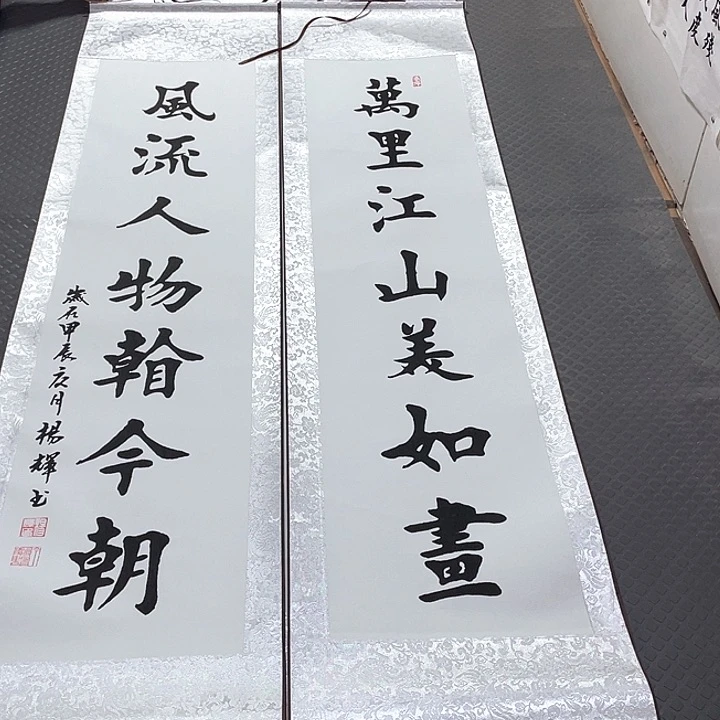 萬里江山美如畫
風流人物䁍今朝
歲在甲辰夏月楊輝书